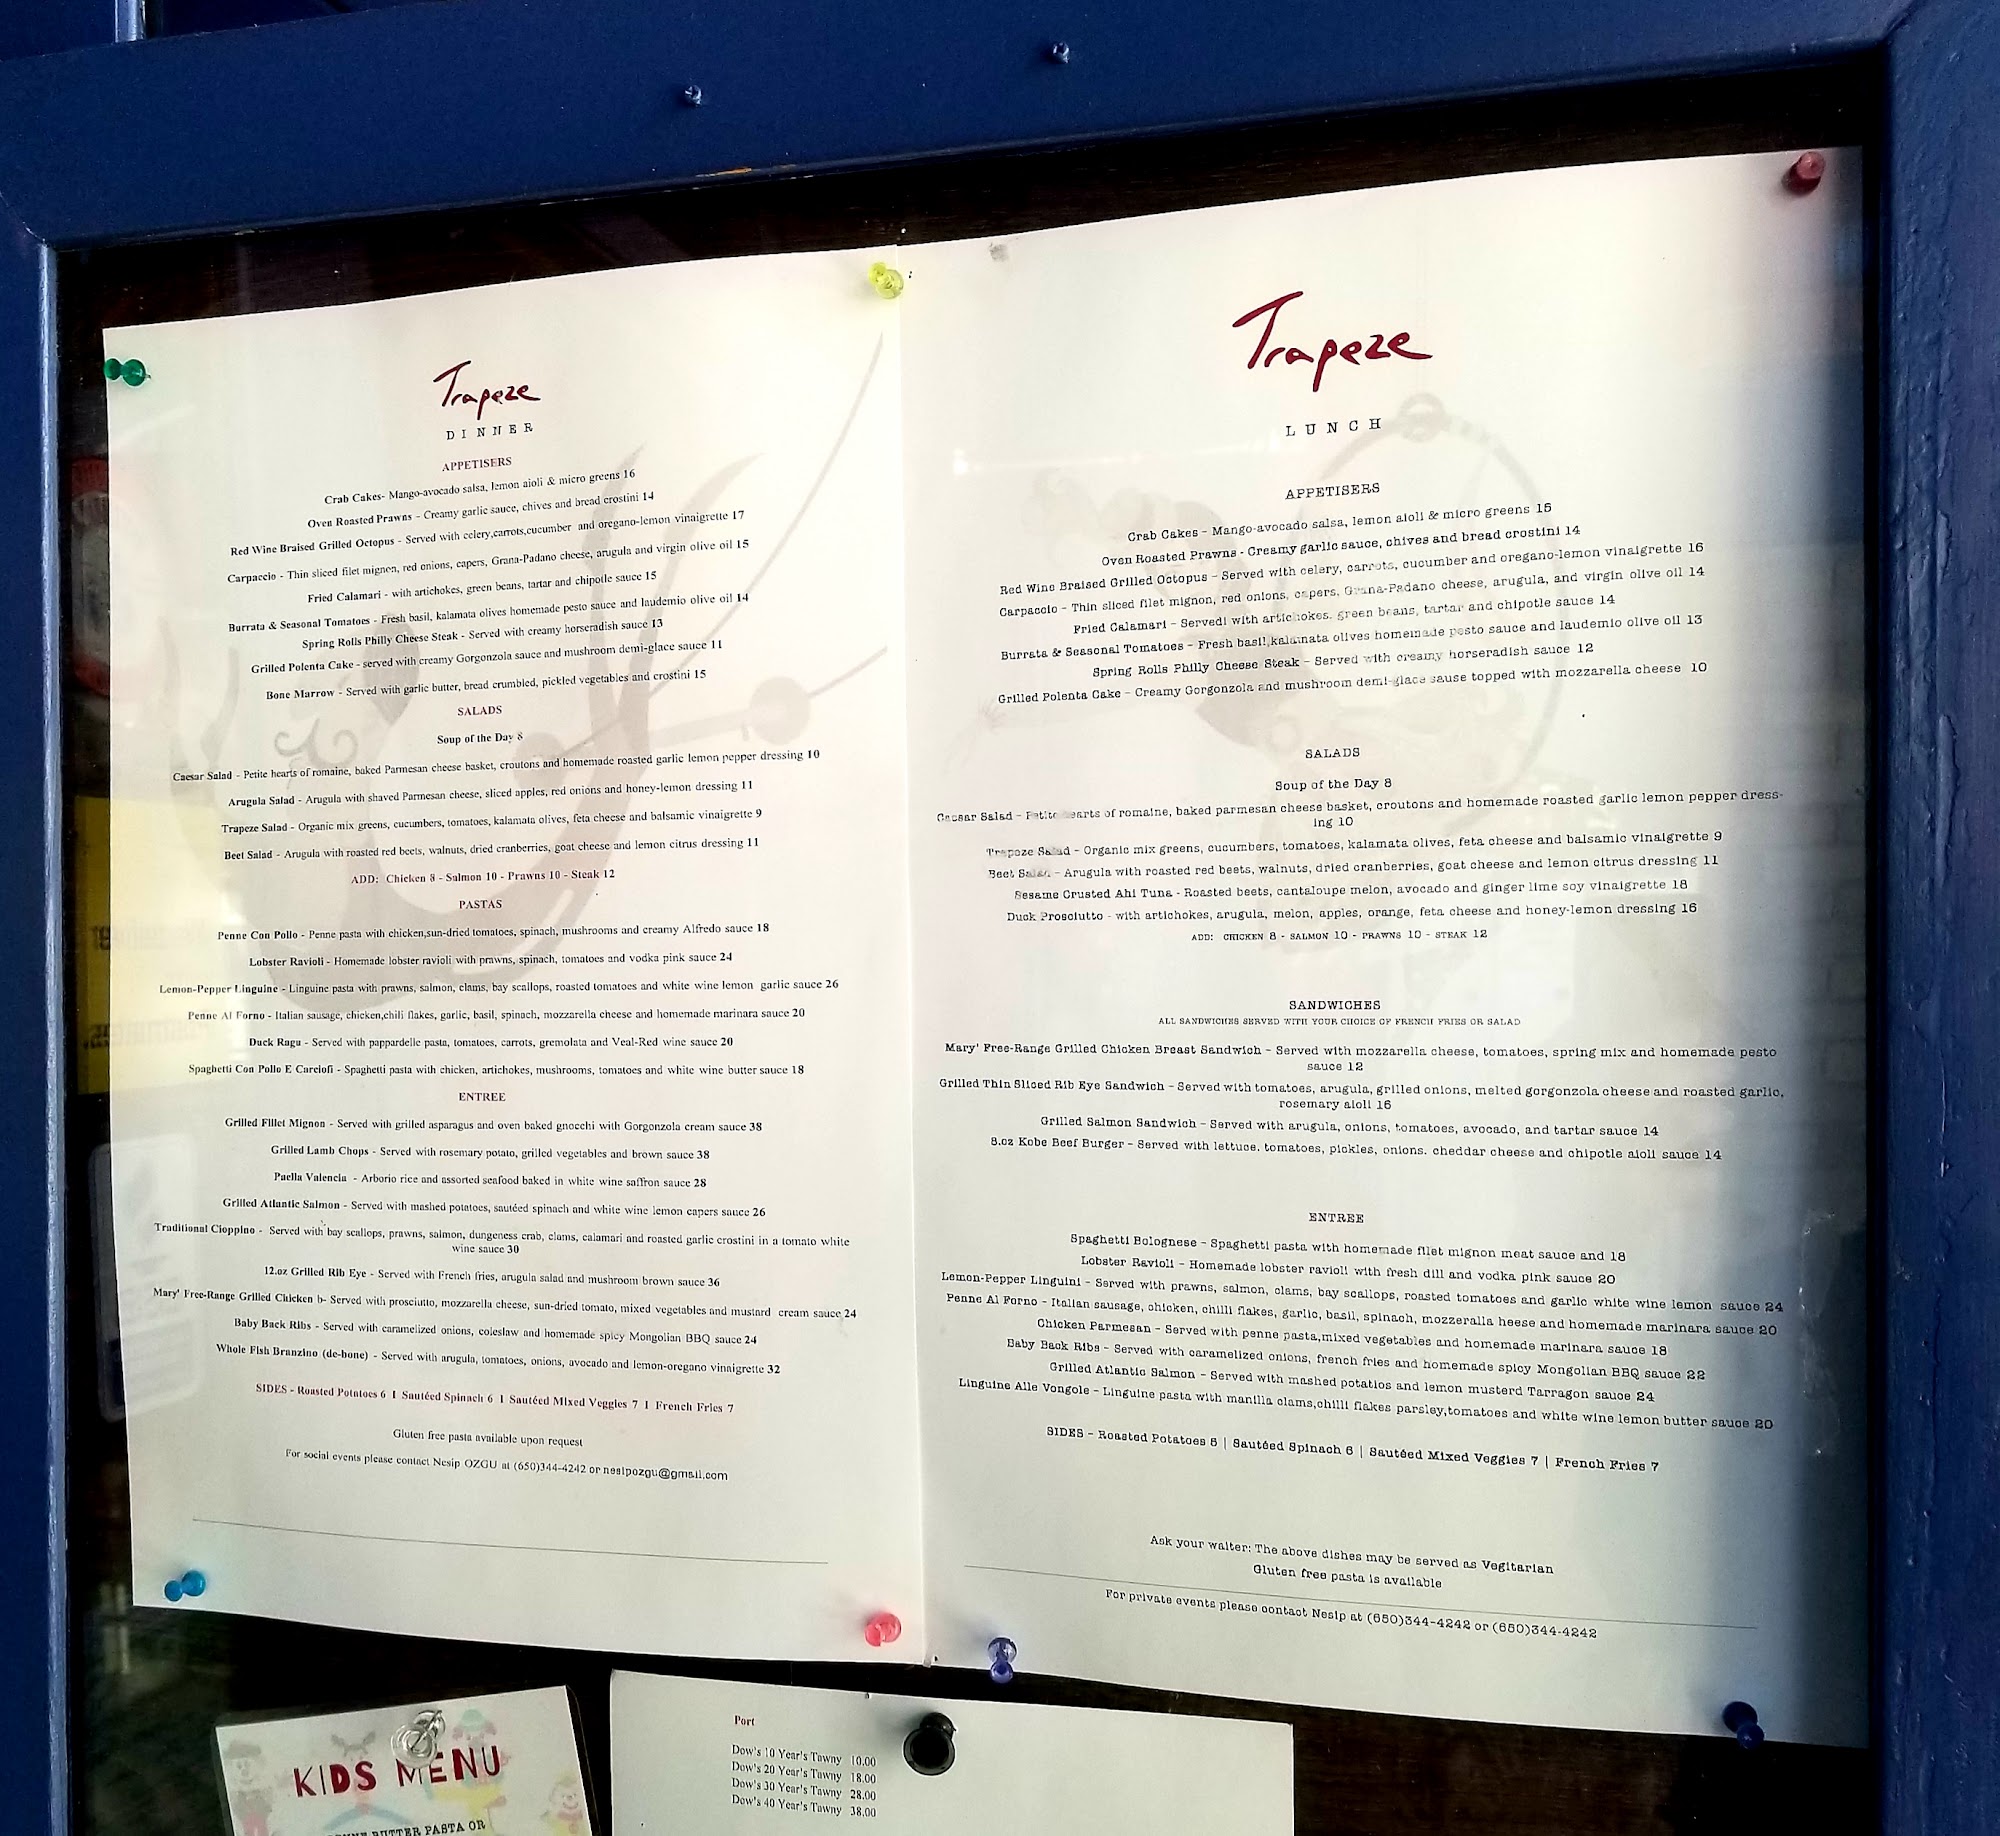 Trapeze
DINNER
APPETISERS
Crab Cakes- Mango-avocado salsa, lemon aioli & micro greens 16
Oven Roasted Prawns - Creamy garlic sauce, chives and bread crostini 14
Red Wine Braised Grilled Octopus - Served with celery,carrots,cucumber and oregano-lemon vinaigrette 17
Carpaccio - Thin sliced filet mignon, red onions, capers, Grana-Padano cheese, arugula and virgin olive oil 15
Fried Calamari - with artichokes, green beans, tartar and chipotle sauce 15
Burrata & Seasonal Tomatoes - Fresh basil, kalamata olives homemade pesto sauce and laudemio olive oil 14
Spring Rolls Philly Cheese Steak - Served with creamy horseradish sauce 13
Grilled Polenta Cake - served with creamy Gorgonzola sauce and mushroom demi-glace sauce 11
Bone Marrow - Served with garlic butter, bread crumbled, pickled vegetables and crostini 15
SALADS
Soup of the Day 8
Caesar Salad - Petite hearts of romaine, baked Parmesan cheese basket, croutons and homemade roasted garlic lemon pepper dressing 10
Arugula Salad - Arugula with shaved Parmesan cheese, sliced apples, red onions and honey-lemon dressing 11
Trapeze Salad - Organic mix greens, cucumbers, tomatoes, kalamata olives, feta cheese and balsamic vinaigrette 9
Beet Salad - Arugula with roasted red beets, walnuts, dried cranberries, goat cheese and lemon citrus dressing 11
ADD: Chicken 8 - Salmon 10 - Prawns 10 - Steak 12
PASTAS
Penne Con Pollo - Penne pasta with chicken,sun-dried tomatoes, spinach, mushrooms and creamy Alfredo sauce 18
Lobster Ravioli - Homemade lobster ravioli with prawns, spinach, tomatoes and vodka pink sauce 24
Lemon-Pepper Linguine - Linguine pasta with prawns, salmon, clams, bay scallops, roasted tomatoes and white wine lemon garlic sauce 26
Penne Al Forno - Italian sausage, chicken,chili flakes, garlic, basil, spinach, mozzarella cheese and homemade marinara sauce 20
Duck Ragu - Served with pappardelle pasta, tomatoes, carrots, gremolata and Veal-Red wine sauce 20
Spaghetti Con Pollo E Carciofi - Spaghetti pasta with chicken, artichokes, mushrooms, tomatoes and white wine butter sauce 18
ENTREE
Grilled Fillet Mignon - Served with grilled asparagus and oven baked gnocchi with Gorgonzola cream sauce 38
Grilled Lamb Chops - Served with rosemary potato, grilled vegetables and brown sauce 38
Paella Valencia - Arborio rice and assorted seafood baked in white wine saffron sauce 28
Grilled Atlantic Salmon - Served with mashed potatoes, sautéed spinach and white wine lemon capers sauce 26
Traditional Cioppino - Served with bay scallops, prawns, salmon, dungeness crab, clams, calamari and roasted garlic crostini in a tomato white
wine sauce 30
12.oz Grilled Rib Eye - Served with French fries, arugula salad and mushroom brown sauce 36
Mary' Free-Range Grilled Chicken b- Served with prosciutto, mozzarella cheese, sun-dried tomato, mixed vegetables and mustard cream sauce 24
Baby Back Ribs - Served with caramelized onions, coleslaw and homemade spicy Mongolian BBQ sauce 24
Whole Fish Branzino (de-bone) - Served with arugula, tomatoes, onions, avocado and lemon-oregano vinaigrette 32
SIDES - Roasted Potatoes 6 I Sautéed Spinach 6 I Sautéed Mixed Veggies 7 I French Fries 7
Gluten free pasta available upon request
For social events please contact Nesip OZGU at (650)344-4242 or nesipozgu@gmail.com
Trapeze
LUNCH
APPETISERS
Crab Cakes - Mango-avocado salsa, lemon aioli & micro greens 15
Oven Roasted Prawns - Creamy garlic sauce, chives and bread crostini 14
Red Wine Braised Grilled Octopus - Served with celery, carrots, cucumber and oregano-lemon vinaigrette 16
Carpaccio - Thin sliced filet mignon, red onions, capers, Grana-Padano cheese, arugula, and virgin olive oil 14
Fried Calamari - Served! with artichokes, green beans, tartar and chipotle sauce 14
Burrata & Seasonal Tomatoes - Fresh basil,kalamata olives homemade pesto sauce and laudemio olive oil 13
Spring Rolls Philly Cheese Steak - Served with creamy horseradish sauce 12
Grilled Polenta Cake - Creamy Gorgonzola and mushroom demi-glace sause topped with mozzarella cheese 10
SALADS
Soup of the Day 8
Caesar Salad - Petite hearts of romaine, baked parmesan cheese basket, croutons and homemade roasted garlic lemon pepper dress-
ing 10
Trapeze Salad - Organic mix greens, cucumbers, tomatoes, kalamata olives, feta cheese and balsamic vinaigrette 9
Beet Salad - Arugula with roasted red beets, walnuts, dried cranberries, goat cheese and lemon citrus dressing 11
Sesame Crusted Ahi Tuna - Roasted beets, cantaloupe melon, avocado and ginger lime soy vinaigrette 18
Duck Prosciutto - with artichokes, arugula, melon, apples, orange, feta cheese and honey-lemon dressing 16
ADD: CHICKEN 8 - SALMON 10 - PRAWNS 10 - STEAK 12
SANDWICHES
ALL SANDWICHES SERVED WITH YOUR CHOICE OF FRENCH FRIES OR SALAD
Mary' Free-Range Grilled Chicken Breast Sandwich - Served with mozzarella cheese, tomatoes, spring mix and homemade pesto
sauce 12
Grilled Thin Sliced Rib Eye Sandwich - Served with tomatoes, arugula, grilled onions, melted gorgonzola cheese and roasted garlic,
rosemary aioli 16
Grilled Salmon Sandwich - Served with arugula, onions, tomatoes, avocado, and tartar sauce 14
8.oz Kobe Beef Burger - Served with lettuce, tomatoes, pickles, onions, cheddar cheese and chipotle aioli sauce 14
ENTREE
Spaghetti Bolognese - Spaghetti pasta with homemade filet mignon meat sauce and 18
Lobster Ravioli - Homemade lobster ravioli with fresh dill and vodka pink sauce 20
Lemon-Pepper Linguini - Served with prawns, salmon, clams, bay scallops, roasted tomatoes and garlic white wine lemon sauce 24
Penne Al Forno - Italian sausage, chicken, chilli flakes, garlic, basil, spinach, mozzeralla heese and homemade marinara sauce 20
Chicken Parmesan - Served with penne pasta,mixed vegetables and homemade marinara sauce 18
Baby Back Ribs - Served with caramelized onions, french fries and homemade spicy Mongolian BBQ sauce 22
Grilled Atlantic Salmon - Served with mashed potatios and lemon musterd Tarragon sauce 24
Linguine Alle Vongole - Linguine pasta with manilla clams,chilli flakes parsley,tomatoes and white wine lemon butter sauce 20
SIDES - Roasted Potatoes 6 | Sautéed Spinach 6 | Sautéed Mixed Veggies 7 | French Fries 7
Ask your waiter: The above dishes may be served as Vegitarian
Gluten free pasta is available
For private events please contact Nesip at (650)344-4242 or (650)344-4242
KIDS MENU
BUTTER PASTA OR
Port
Dow's 10 Year's Tawny 10.00
Dow's 20 Year's Tawny 18.00
Dow's 30 Year's Tawny 28.00
Dow's 40 Year's Tawny 38.00